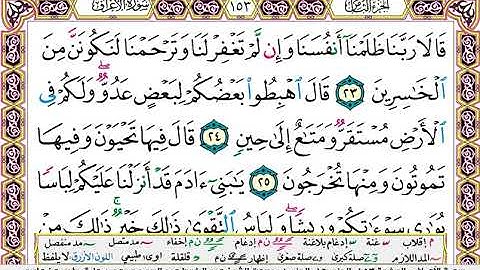 الجزء الثامن ١٥٣ سورة الأعراف
قَالَا رَبَّنَا ظَلَمْنَا أَنفُسَنَا وَإِن لَّمْ تَغْفِرْ لَنَا وَتَرْحَمْنَا لَنَكُونَنَّ مِنَ
الْخَاسِرِينَ ٢٣ قَالَ اهْبِطُوا بَعْضُكُمْ لِبَعْضٍ عَدُوٌّ وَلَكُمْ فِي
الْأَرْضِ مُسْتَقَرٌّ وَمَتَاعٌ إِلَىٰ حِينٍ ٢٤ قَالَ فِيهَا تَحْيَوْنَ وَفِيهَا
تَمُوتُونَ وَمِنْهَا تُخْرَجُونَ ٢٥ يَابَنِي ءَادَمَ قَدْ أَنزَلْنَا عَلَيْكُمْ لِبَاسًا
يُوَارِي سَوْءَاتِكُمْ وَرِيشًا وَلِبَاسُ التَّقْوَىٰ ذَٰلِكَ خَيْرٌ ذَٰلِكَ مِنْ
م إقلاب غنة إدغام إدغام بلاغنة ن م إخفاء مد متصل مد منفصل
المد اللازم صلة كبرى صلة صغرى إظهار ن م قلقلة اوى طبيعي اللون الأزرق لا يلفظ